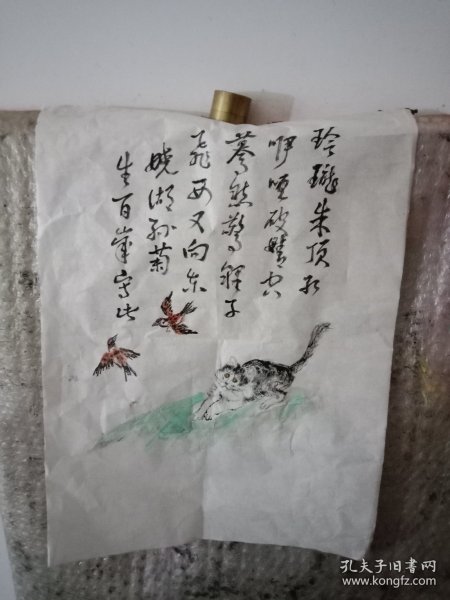 玲珑朱顶红
咿哑破晴空
蓦然惊雏子
飞西又向东
娆湖孙菊
生百峯写此
孔夫子旧书网
www.kongfz.com